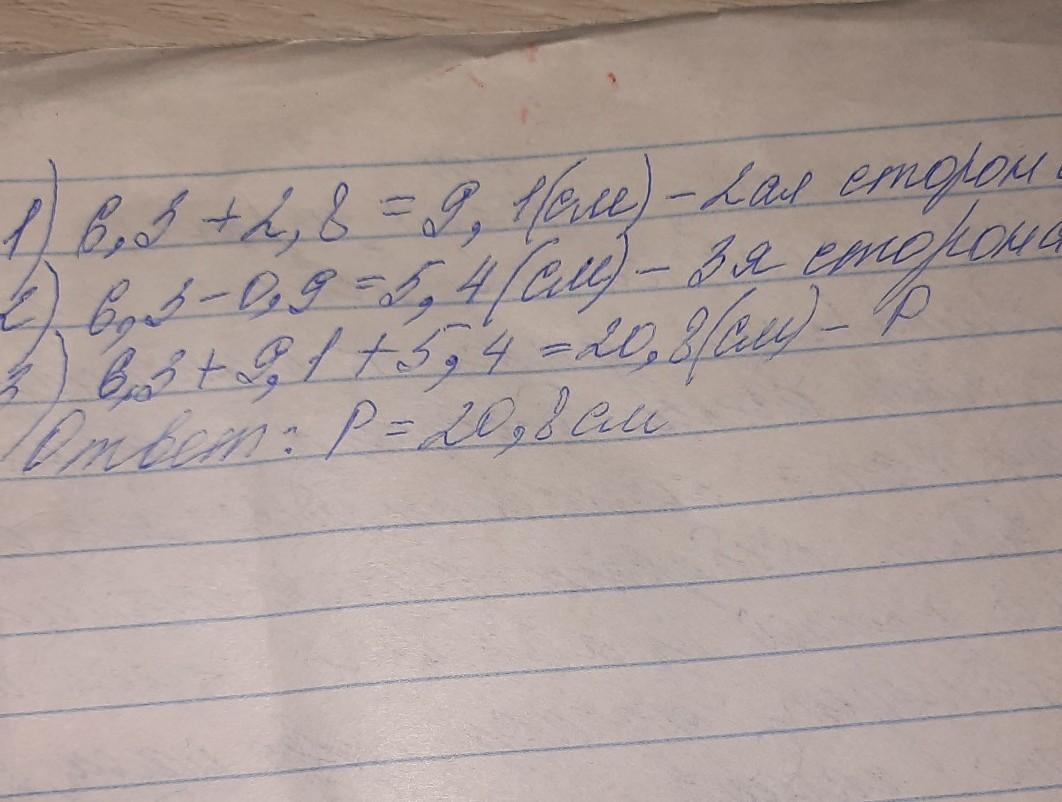 1) 6,3 + 2,8 = 9,1(см) - 2ая сторона
2) 6,3 - 0,9 = 5,4 (см) - 3я сторона
3) 6,3 + 9,1 + 5,4 = 20,8(см) - P
Ответ: P = 20,8 см